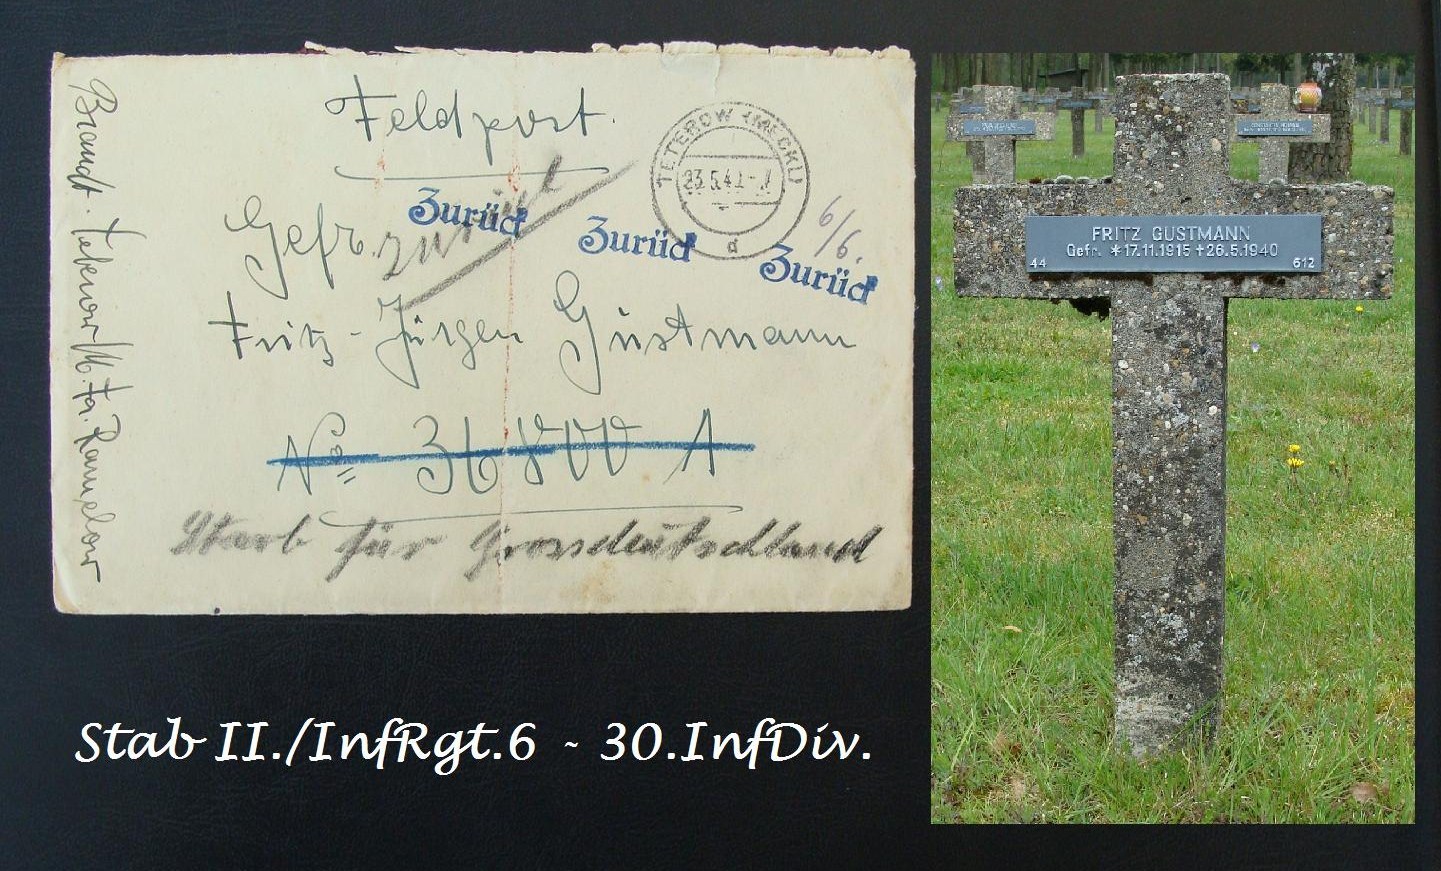 Feldpost.
TETEROW (MECKL)
23.5.40
d
Zurück
Zurück
Zurück
zurück
6/6.
Gefr.
Fritz-Jürgen Gustmann
No 36800 A
Starb für Grossdeutschland
Brandt. Teterow/M. Fa. Ramelow
FRITZ GUSTMANN
Gefr. *17.11.1915 †26.5.1940
44 612
Stab II./InfRgt.6 - 30.InfDiv.